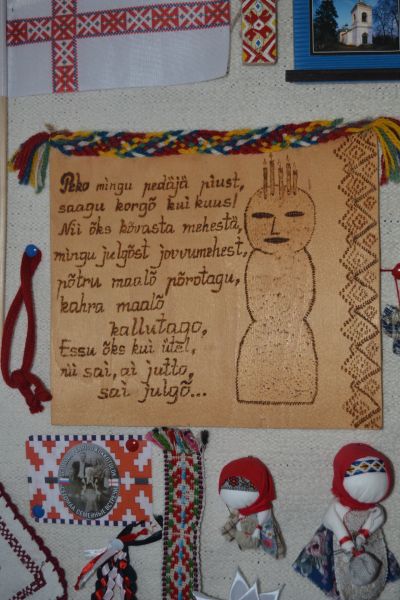 Peko mingu pedäjä piust,
saagu korgõ kui kuus!
Nii õks kõvasta mehestä,
mingu julgõst jovvumehest,
põtru maalõ põrotagu,
kahra maalõ
kallutago,
Essu õks kui ütel,
nii sai, ai jutto,
sai julgõ...